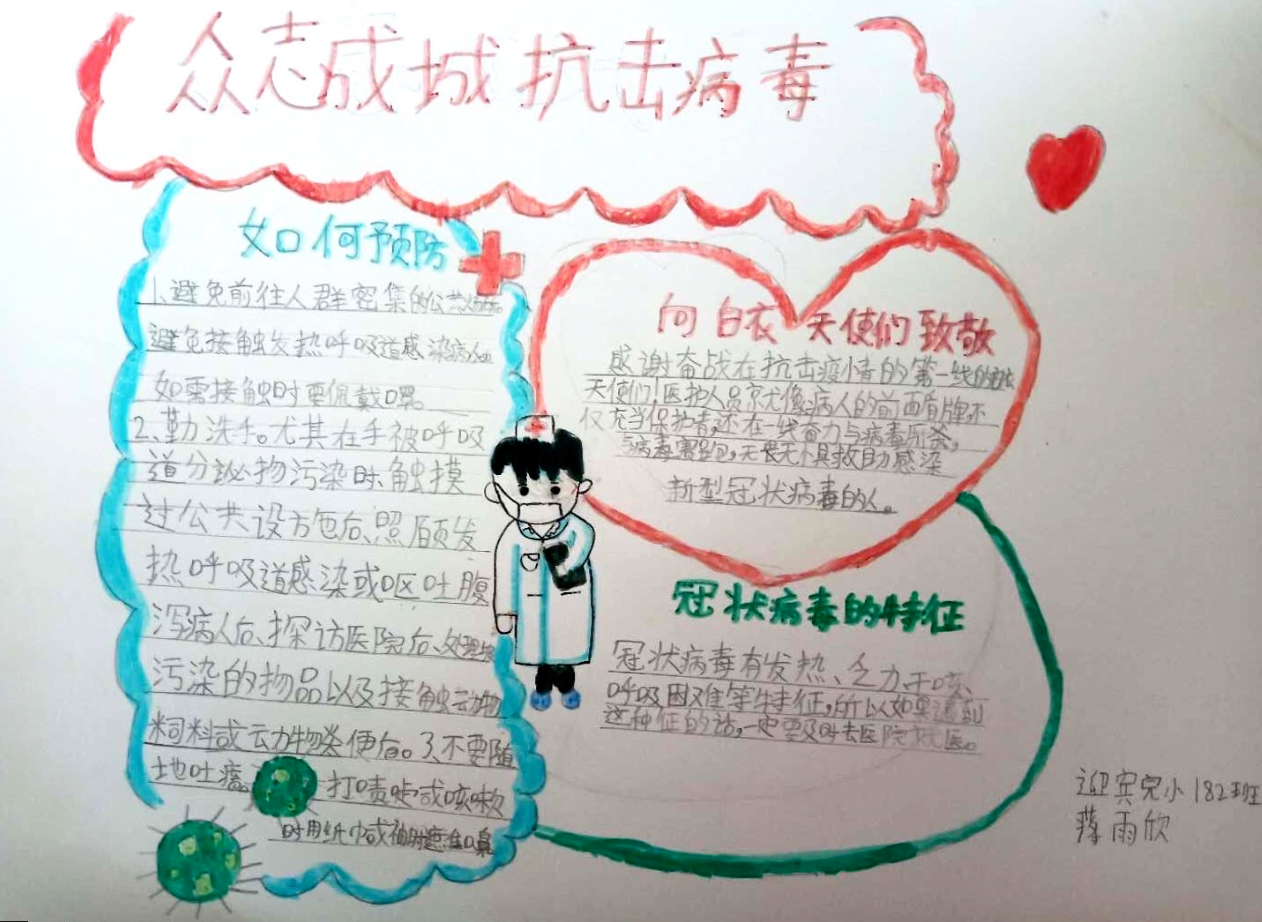 众志成城抗击病毒
如何预防
1、避免前往人群密集的公共场所。
避免接触发热呼吸道感染病人。
如需接触时要佩戴口罩。
2、勤洗手。尤其在手被呼吸
道分泌物污染时、触摸
过公共设方包后、照顾发
热呼吸道感染或呕吐腹
泻病人后、探访医院后、处理被
污染的物品以及接触动物
饲料或动物粪便后。3、不要随
地吐痰。打喷嚏或咳嗽
时用纸巾或袖肘遮住口鼻
向白衣天使们致敬
感谢奋战在抗击疫情的第一线的白衣
天使们!医护人员京尤像病人的前面盾牌不
仅充当保护者,还在一线奋力与病毒厮杀,
与病毒 无畏无惧救助感染
新型冠状病毒的人。
冠状病毒的特征
冠状病毒有发热、乏力干咳、
呼吸困难等特征,所以如果遇到
这种征的话,一定要及时去医院就医。
迎宾完小182班
雨欣